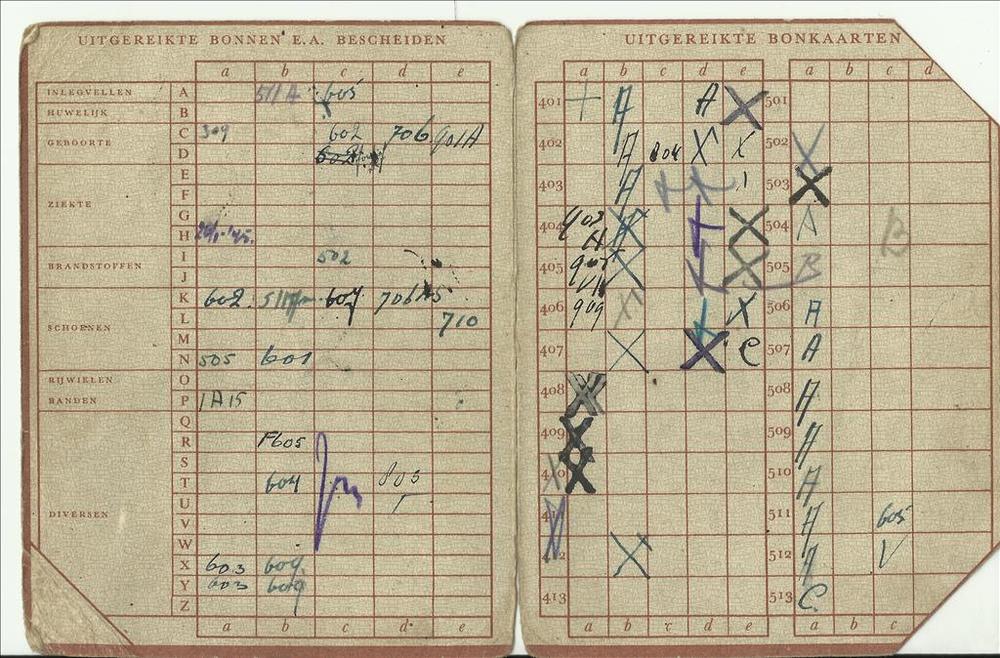 UITGEREIKTE BONNEN E.A. BESCHEIDEN
a b c d e
INLEGVELLEN A 511A 605
HUWELIJK B
GEBOORTE C 309 602 706 901A
D
E
ZIEKTE F
G
H
BRANDSTOFFEN I 502
J
K 602. 607 706
SCHOENEN L 710
M
N 505 601
RIJWIELEN O
BANDEN P 1A15
Q
R F605
S
T 604 805
U
DIVERSEN V
W
X 603 609
Y 603 609
Z
a b c d e
UITGEREIKTE BONKAARTEN
a b c d e a b c d
401 + A A X 501
402 A 804 X X 502 X
403 A 503 X
404 903 A X X 504 A B
405 X X 505 B
406 909 X X 506 A
407 X X C 507 A
408 X 508 A
409 X 509 A
X 510 A
511 A 605
X 512 A V
413 513 C
a b c d e a b c